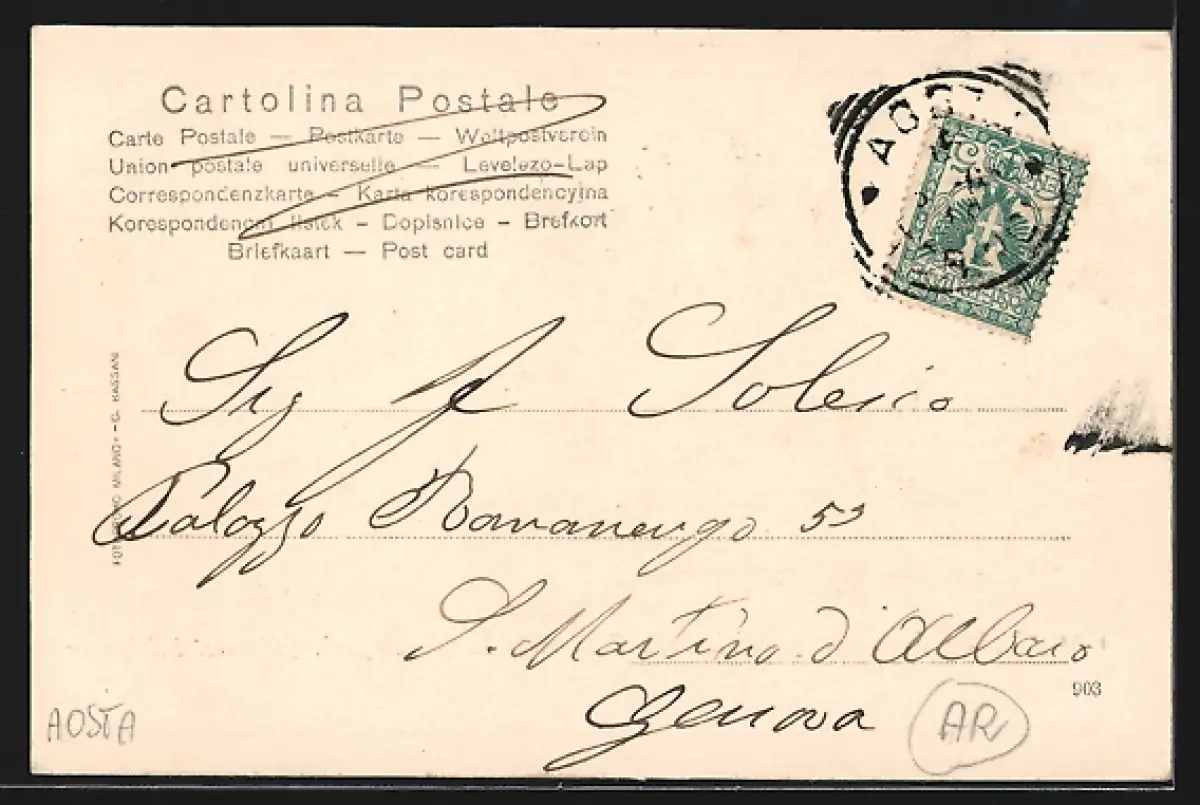 Cartolina Postale
Carte Postale — Postkarte — Weltpostverein
Union postale universelle — Levelezo-Lap
Correspondenzkarte - Karta korespondencyjna
Korespondencni listek - Dopisnice - Brefkort
Briefkaart — Post card
AOSTA
Sig A Solesio
Palazzo Ravanengo 53
S. Martino d'Albaro
Genova
903
MILANO - G. HASSANI
AOSTA
AR